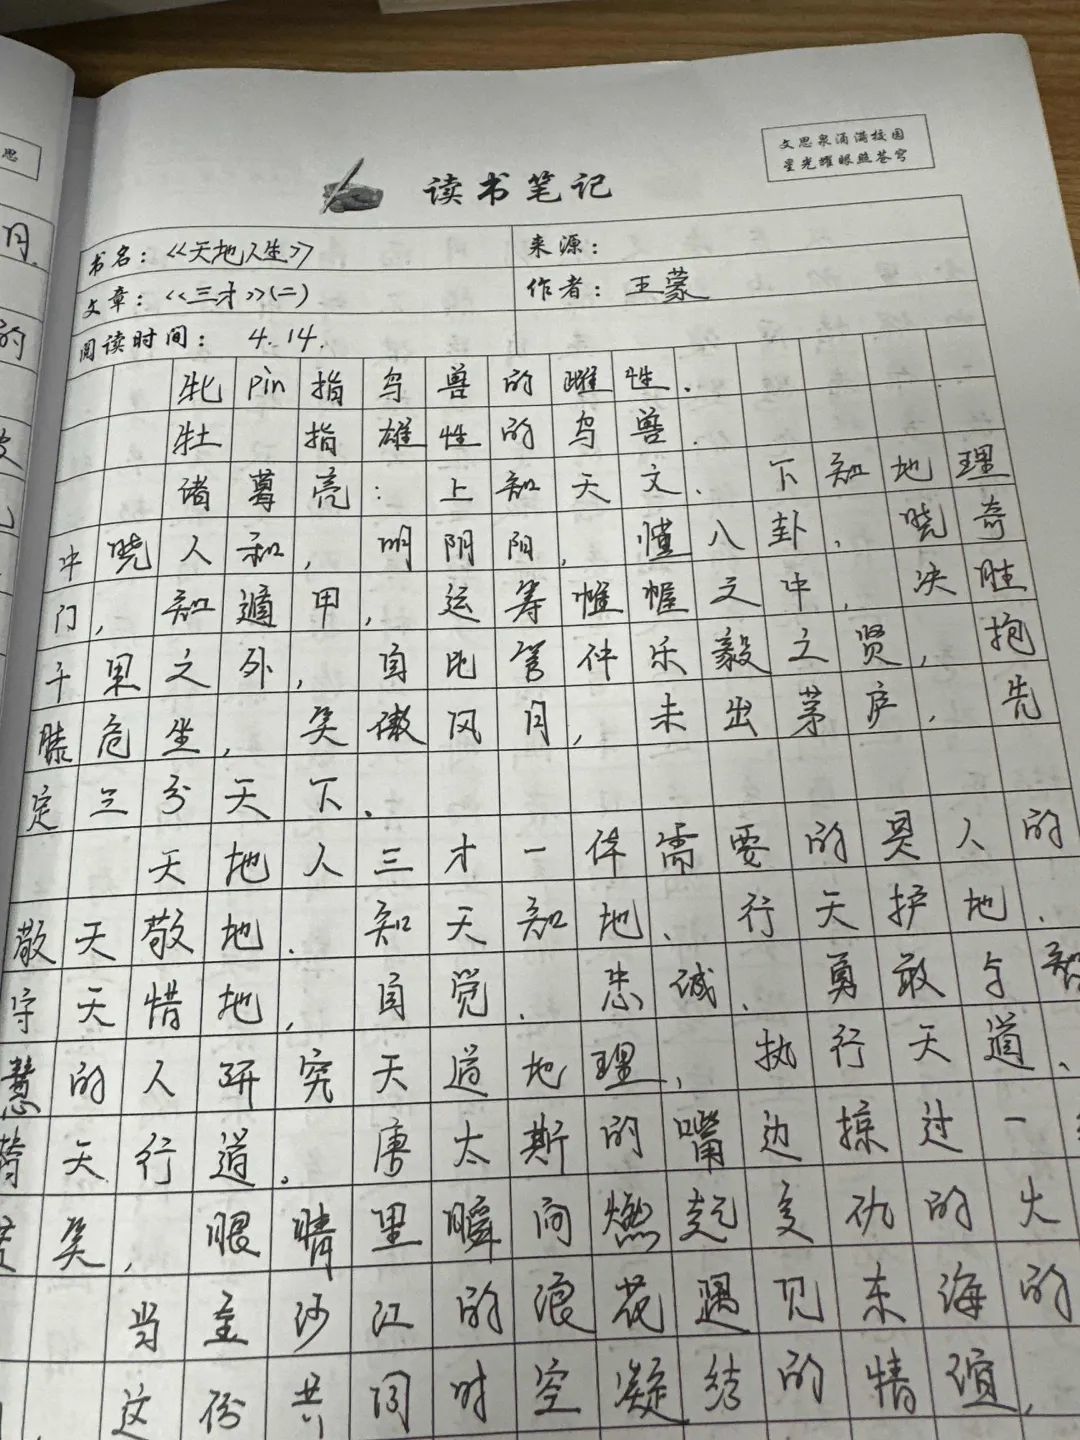 思
月
的
文思泉涌满校园
星光耀眼照苍穹
读书笔记
书名：《天地人生》
来源：
文章：《三才》(二)
作者：王蒙
阅读时间：4.14.
牝pin指鸟兽的雌性.
牡 指雄性的鸟兽.
诸葛亮：上知天文、下知地理
中晓人和，明阴阳，懂八卦，晓奇
门，知遁甲，运筹帷幄之中，决胜
千里之外，自比管仲乐毅之贤，抱
膝危坐，笑傲风月，未出茅庐，先
定三分天下.
天地人三才一体需要的是人的
敬天敬地、知天知地、行天护地、
守天惜地，自觉、忠诚、勇敢与智
慧的人研究天道地理，执行天道、
替天行道。唐太斯的嘴边掠过一
笑，眼睛里瞬间燃起复仇的火
当金沙江的浪花遇见东海的
这份共同时空凝结的情谊，